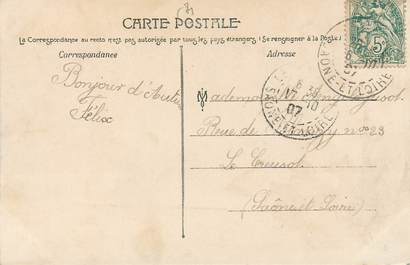 CARTE POSTALE
La Correspondance au recto n'est pas autorisée par tous les pays étrangers (Se renseigner à la Poste)
Correspondance
Adresse
Bonjour d'Autun
Félix
Mademoiselle
Rue de n° 23
Le Creusot
(Saône et Loire)
5c
SAONE-ET-LOIRE
07
SAONE-ET-LOIRE